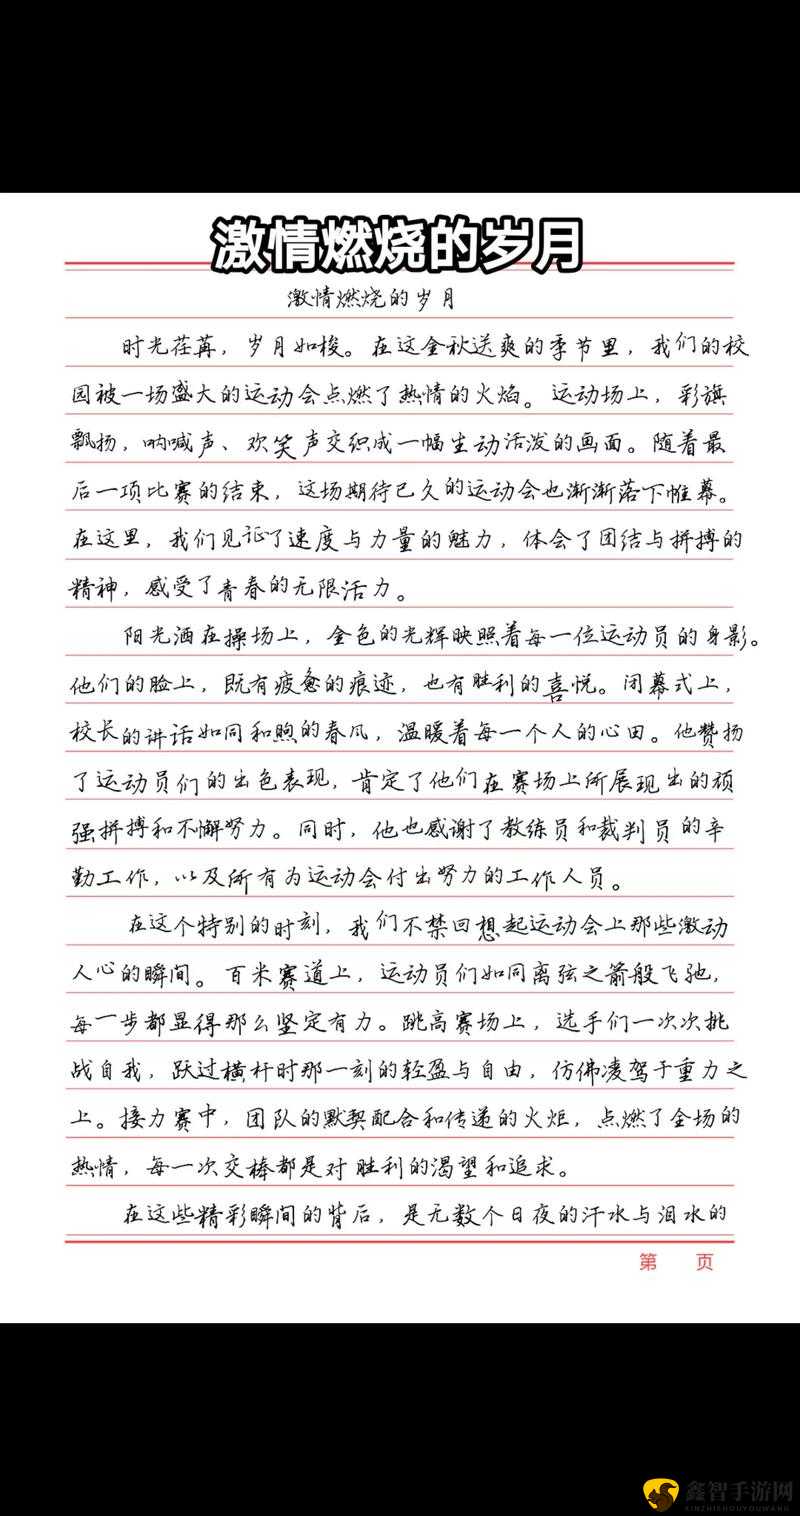 激情燃烧的岁月
激情燃烧的岁月
时光荏苒，岁月如梭。在这金秋送爽的季节里，我们的校
园被一场盛大的运动会点燃了热情的火焰。运动场上，彩旗
飘扬，呐喊声、欢笑声交织成一幅生动活泼的画面。随着最
后一项比赛的结束，这场期待已久的运动会也渐渐落下帷幕。
在这里，我们见证了速度与力量的魅力，体会了团结与拼搏的
精神，感受了青春的无限活力。
阳光洒在操场上，金色的光辉映照着每一位运动员的身影。
他们的脸上，既有疲惫的痕迹，也有胜利的喜悦。闭幕式上，
校长的讲话如同和煦的春风，温暖着每一个人的心田。他赞扬
了运动员们的出色表现，肯定了他们在赛场上所展现出的顽
强拼搏和不懈努力。同时，他也感谢了教练员和裁判员的辛
勤工作，以及所有为运动会付出努力的工作人员。
在这个特别的时刻，我们不禁回想起运动会上那些激动
人心的瞬间。百米赛道上，运动员们如同离弦之箭般飞驰，
每一步都显得那么坚定有力。跳高赛场上，选手们一次次挑
战自我，跃过横杆时那一刻的轻盈与自由，仿佛凌驾于重力之
上。接力赛中，团队的默契配合和传递的火炬，点燃了全场的
热情，每一次交棒都是对胜利的渴望和追求。
在这些精彩瞬间的背后，是无数个日夜的汗水与泪水的
第 页
鑫智手游网
XINZHISHOUYOUWANG